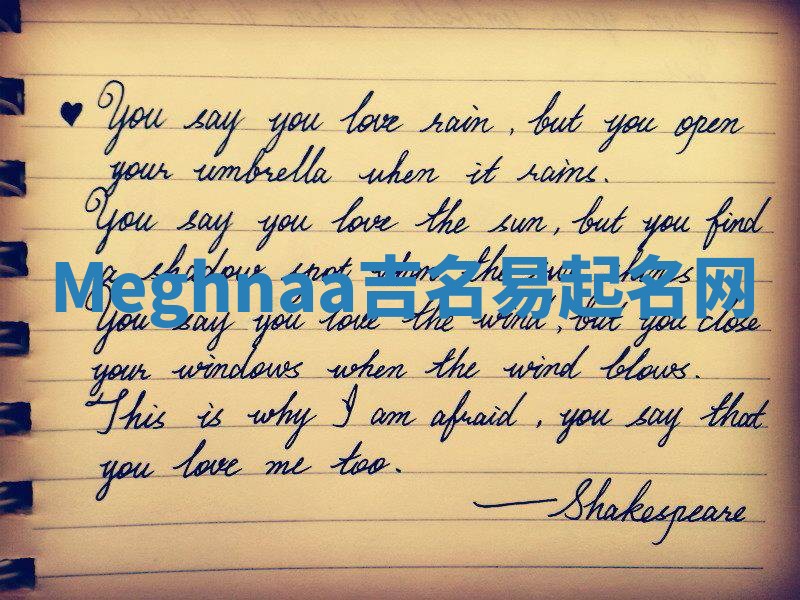 ♥ You say you love rain, but you open
your umbrella when it rains.
You say you love the sun, but you find
a shadow spot when the sun shines
Meghnaa吉名易起名网
You say you love the wind, but you close
your windows when the wind blows.
This is why I am afraid, you say that
you love me too.
—Shakespeare